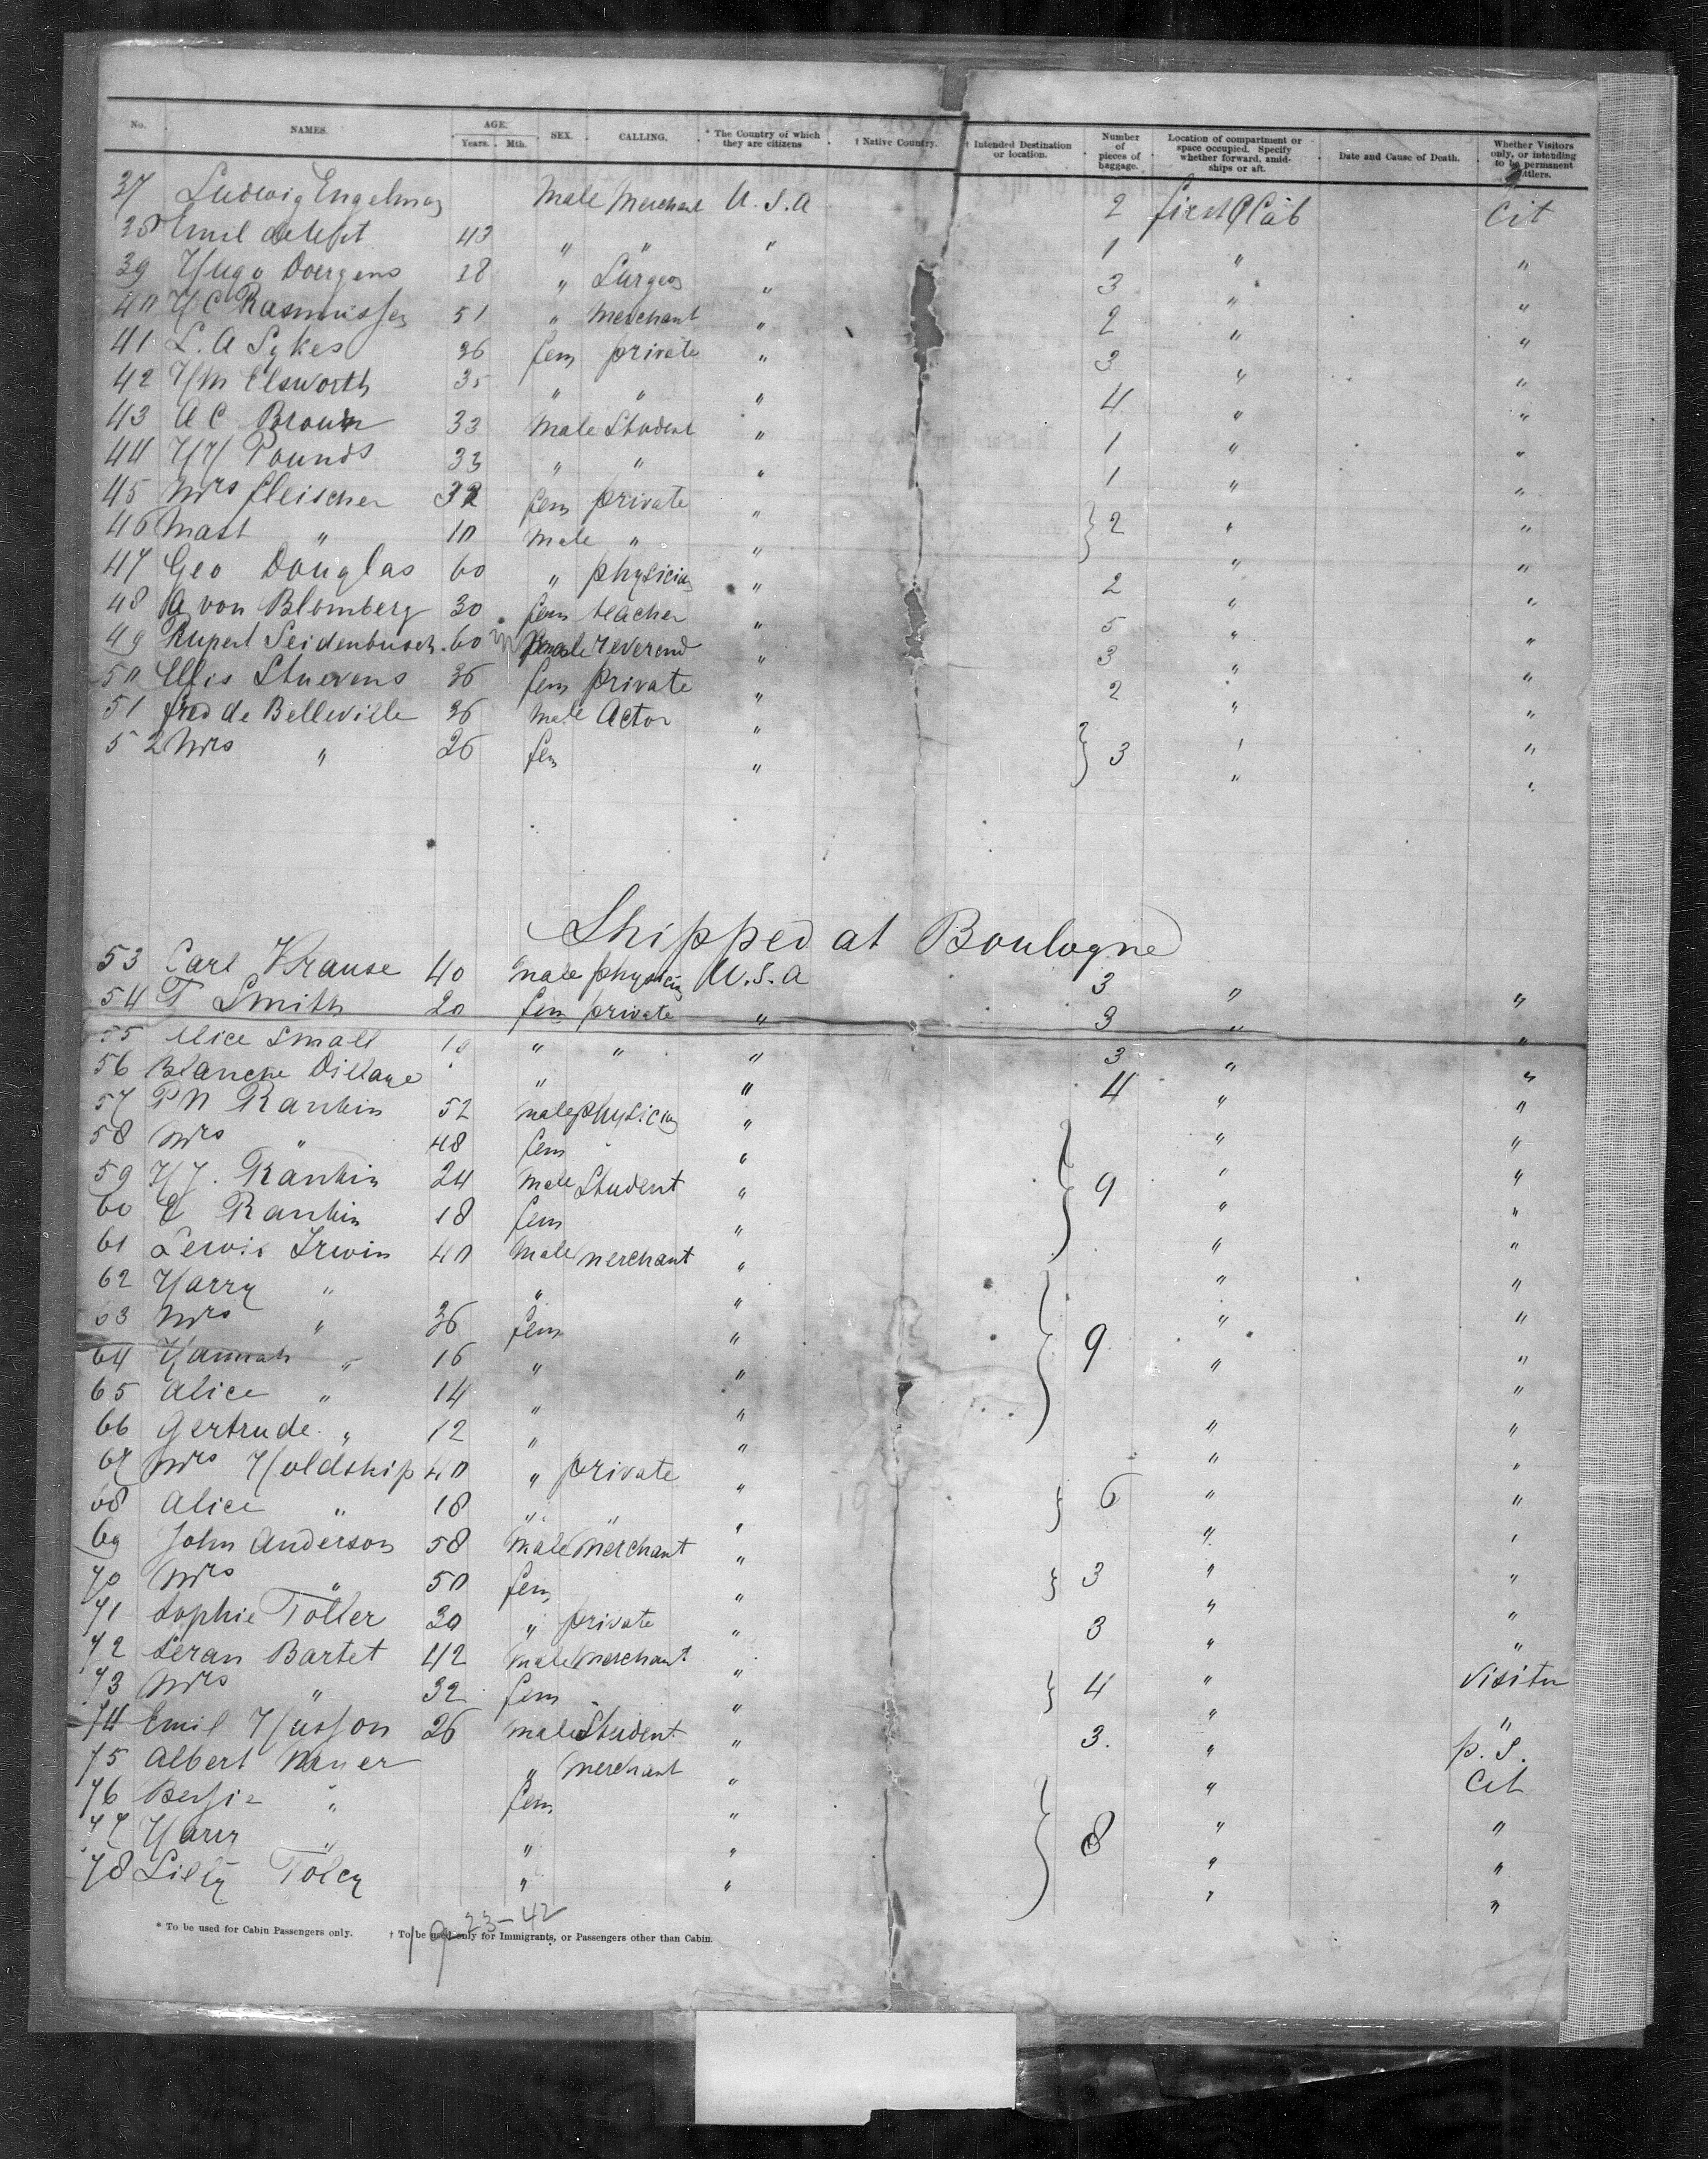 No. NAMES. AGE. Years. Mth. SEX. CALLING. * The Country of which they are citizens † Native Country. † Intended Destination or location. Number of pieces of baggage. Location of compartment or space occupied. Specify whether forward, amidships or aft. Date and Cause of Death. Whether Visitors only, or intending to be permanent settlers.
37 Ludwig Engelman Male Merchant U.S.A 2 first Cab Cit
38 Emil 43 " " " 1 " "
39 Hugo Doergens 28 " Surgeon " 3 " "
40 H C Rasmussen 51 " Merchant " 2 " "
41 L. A Sykes 36 fem private " 3 " "
42 H M Elsworth 35 " " " 4 " "
43 A C Brown 33 Male Student " 1 " "
44 H H Pounds 33 " " " 1 " "
45 Mrs fleischer 32 fem private " } 2 " "
46 Mast " 10 Male " " " "
47 Geo Douglas 60 " physician " 2 " "
48 A von Blomberg 30 fem teacher " 5 " "
49 Rupert Seidenbusch. 60 m male reverend " 3 " "
50 Elfis Stuevens 36 fem private " 2 " "
51 fred de Belleville 36 Male Actor " } 3 " "
52 Mrs " 26 fem " " "
Shipped at Boulogne
53 Carl Krause 40 male physician U.S.A 3 " "
54 T Smith 20 fem private " 3 " "
55 Alice Small " " " 3 " "
56 Blanche Dillaye " " 4 " "
57 P N Rankin 52 male physician " } 9 " "
58 Mrs " 48 fem " " "
59 H J. Rankin 24 Male Student " " "
60 E Rankin 18 fem " " "
61 Lewis Irwin 40 Male merchant " } 9 " "
62 Harry " " " " "
63 Mrs " 36 fem " " "
64 Hannah " 16 " " " "
65 Alice " 14 " " " "
66 Gertrude " 12 " " " "
67 Mrs Holdship 40 " private " } 6 " "
68 Alice " 18 " " " " "
69 John Anderson 58 Male Merchant " } 3 " "
70 Mrs " 50 fem " " "
71 Sophie Toller 30 " private " 3 " "
72 Seran Bartet 42 Male merchant " } 4 " Visitor
73 Mrs " 32 fem " " "
74 Emil Husson 26 male Student " 3. " p. S.
75 Albert Mayer " merchant " } 8 " Cit
76 Bessie " fem " " "
77 Harry " " " " "
78 Lilly " " " "
19 23-42
* To be used for Cabin Passengers only. † To be used only for Immigrants, or Passengers other than Cabin.